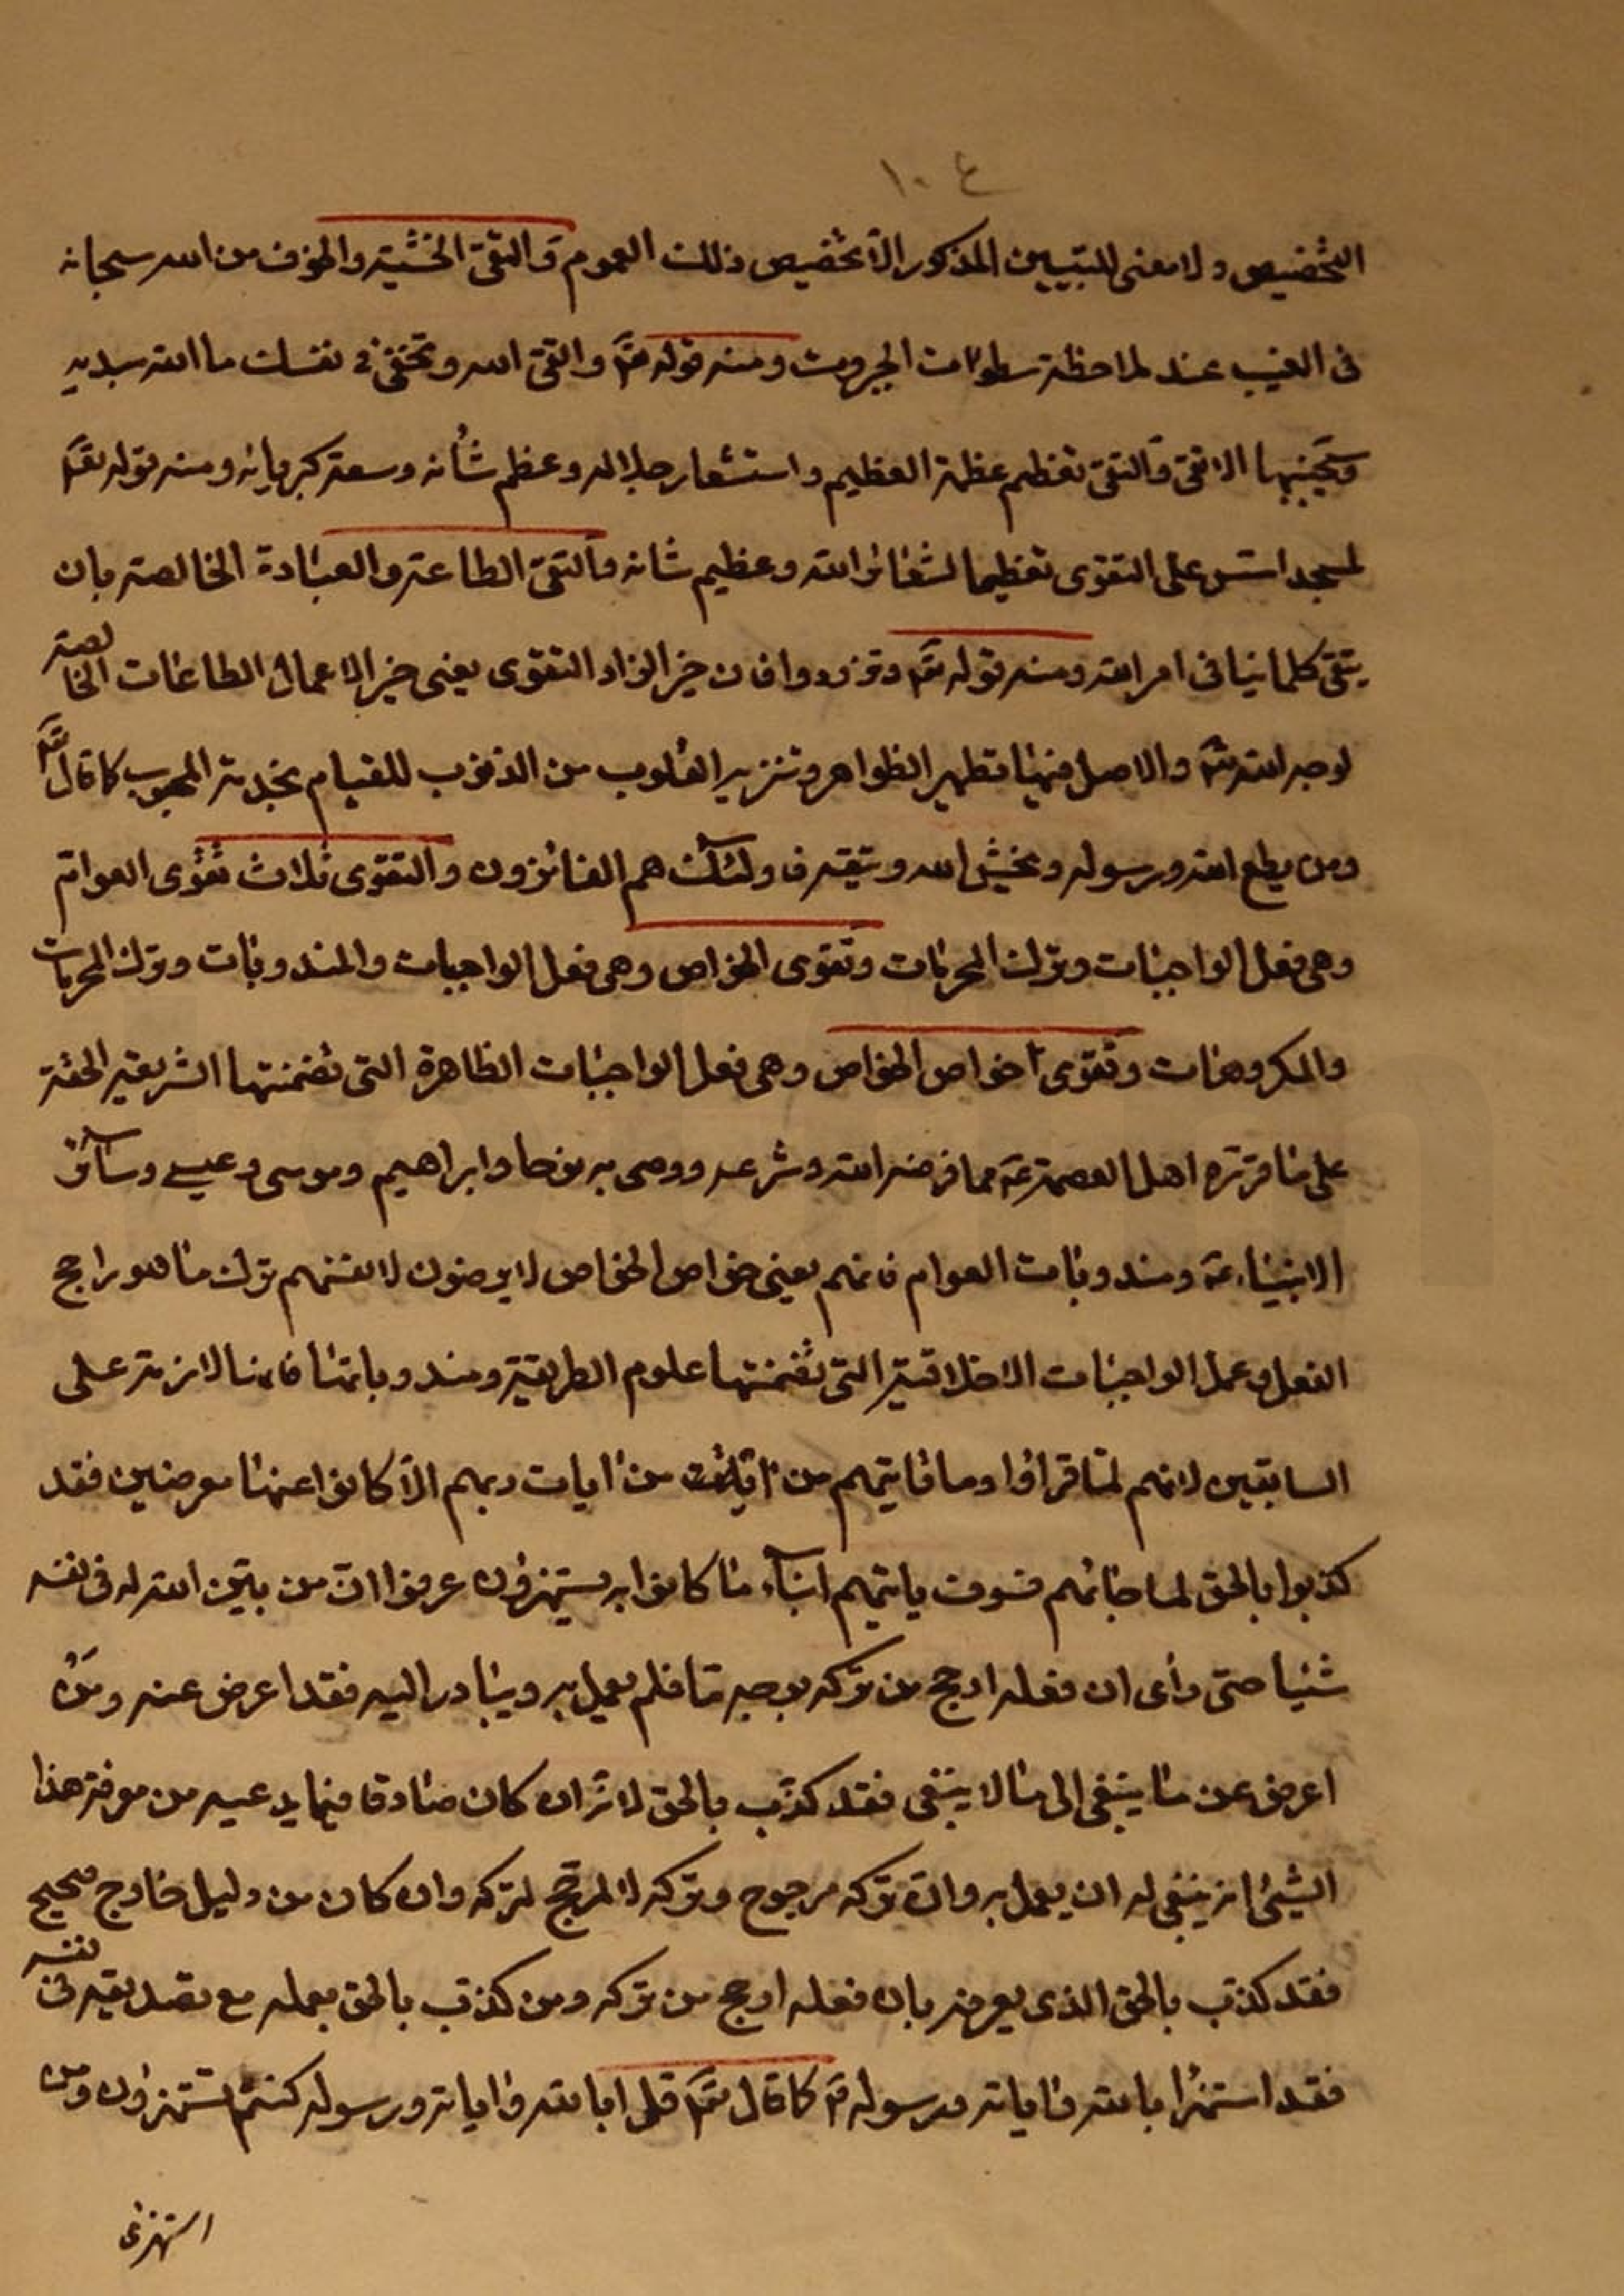 ١٠٤
التخصيص ولا معنى للتبيين المذكور الّا تخصيص ذلك العموم والتقى الخشية والخوف من الله سبحانه
فى الغيب عند ملاحظة سطوات الجبروت ومنه قوله تعٓ واتقى الله وتخفى فى نفسك ما الله مبديه
وسيجنبها الاتقى والتقى تعظيم عظمة العظيم واستشعار جلاله وعظم شأنه وسعة كبريائه ومنه قوله تعٓ
لمسجد اسّس على التقوى تعظيما لشعائر الله وعظيم شانه والتقى الطاعة والعبادة الخالصة بان
يتقى كلما ينافى امر الله ومنه قوله تعٓ وتزودوا فان خير الزاد التقوى يعنى خير الاعمال الطاعات الخالصة
لوجه الله تعٓ والاصل فيها تطهير الظواهر وتنزيه القلوب من الذنوب للقيام بخدمة المحبوب كما قال تعٓ
ومن يطع الله ورسوله ويخش الله ويتقه فاولئك هم الفائزون والتقوى ثلاث تقوى العوامّ
وهى فعل الواجبات وترك المحرمات وتقوى الخواص وهى فعل الواجبات والمندوبات وترك المحرمات
والمكروهات وتقوى خواص الخواص وهى فعل الواجبات الظاهرة التى تضمنتها الشريعة الحقة
على ما قرّره اهل العصمة عٓ مما فرضه الله وشرعه ووصى به نوحا وابراهيم وموسى وعيسى وسائر
الانبياء عٓ ومندوبات العوام فانهم يعنى خواص الخواص لا يرضون لانفسهم ترك ما هو راجح
الفعل وعمل الواجبات الاخلاقية التى تضمنتها علوم الطريقة ومندوباتها فانها لازمة على
السابقين لانهم لما قراؤا وما تاتيهم من اية من ايات ربهم الّا كانوا عنها معرضين فقد
كذبوا بالحق لما جائهم فسوف ياتيهم انباء ما كانوا به يستهزؤن عرفوا انّ من بيّن الله له فى نفسه
شيئا حتى رأى ان فعله ارجح من تركه بوجه ما فلم يعمل به ويبادر اليه فقد اعرض عنه ومَنْ
اعرض عن ما ينبغى الى ما لا ينبغى فقد كذّب بالحق لانّه ان كان صادقا فيما يدعيه من معرفة هذا
الشيئ انه ينبغى له ان يعمل به وانّ تركه مرجوح وتركه لا لمرجّح لتركه وان كان من دليل خارج صحيح
فقد كذب بالحق الذى يعرفه بان فعله ارجح من تركه ومن كذّب بالحق بعمله مع تصديقه فى نفسه
فقد استهزأ بالله واياته ورسوله صٓ كما قال تعٓ قل ابالله واياته ورسوله كنتم تستهزؤن ومن
استهزئ